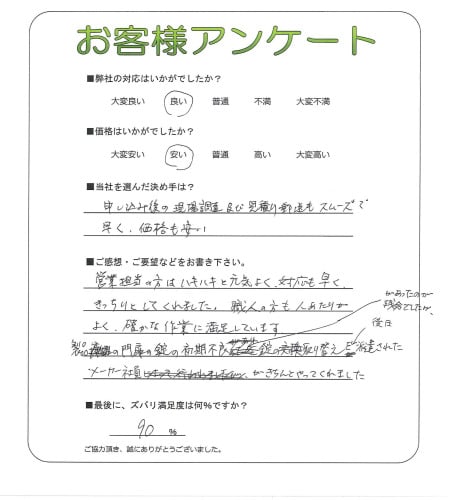 お客様アンケート
■弊社の対応はいかがでしたか？
大変良い 良い 普通 不満 大変不満
■価格はいかがでしたか？
大変安い 安い 普通 高い 大変高い
■当社を選んだ決め手は？
申し込み後の現場調査及び見積り郵送もスムーズで
早く、価格も安い
■ご感想・ご要望などをお書き下さい。
営業担当の方はハキハキと元気よく、対応も早く、
きっちりとしてくれました。職人の方も人あたりが
よく、確かな作業に満足しています
があったのが
残念でしたが、
後日
製品の門扉の錠の初期不良 錠の 取り替え 派遣された
メーカー社員 がきちんとやってくれました
■最後に、ズバリ満足度は何%ですか？
90 %
ご協力頂き、誠にありがとうございました。